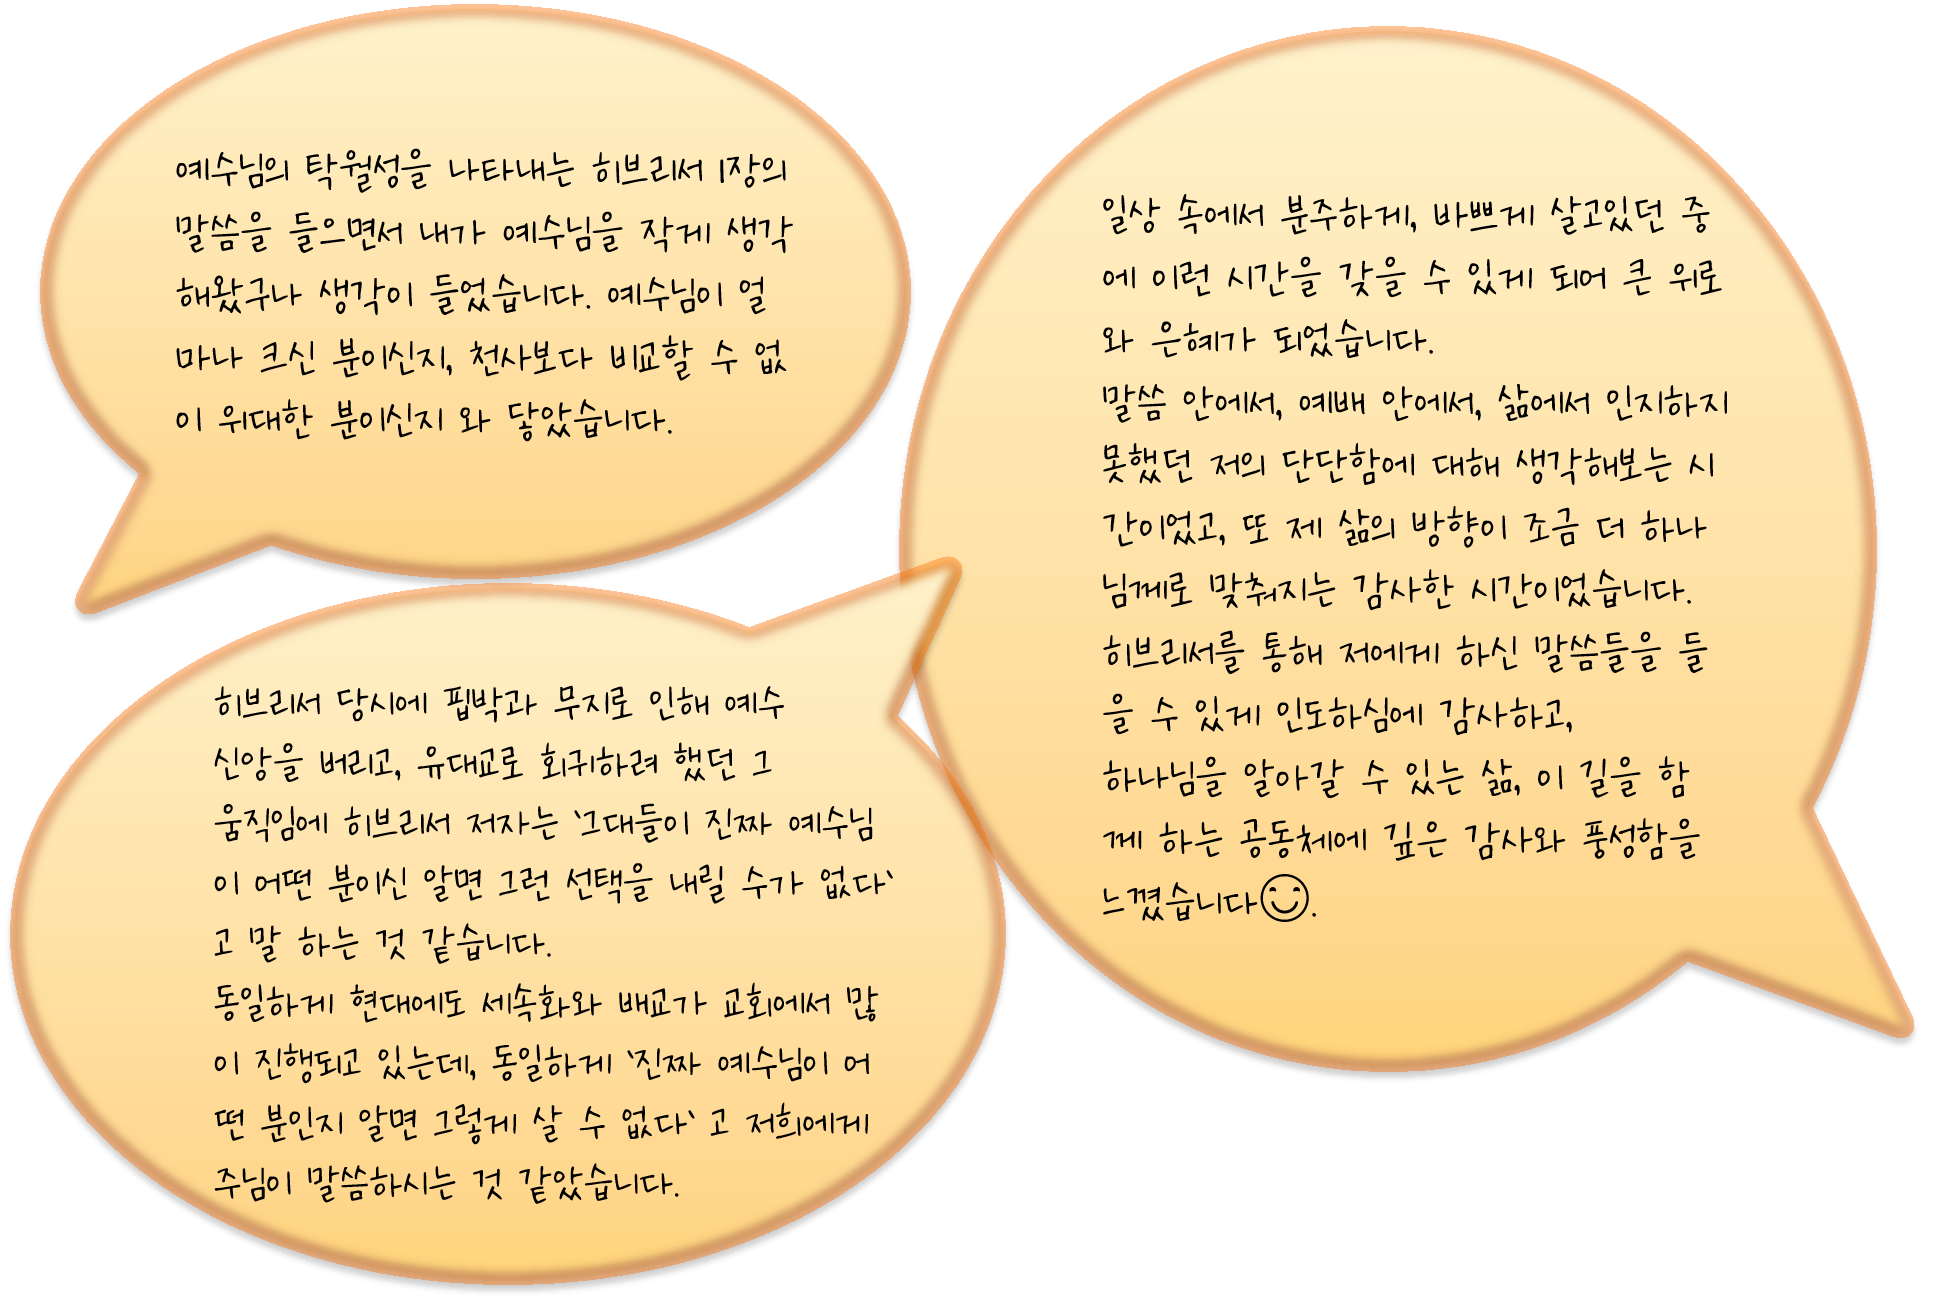 예수님의 탁월성을 나타내는 히브리서 1장의
말씀을 들으면서 내가 예수님을 작게 생각
해왔구나 생각이 들었습니다. 예수님이 얼
마나 크신 분이신지, 천사보다 비교할 수 없
이 위대한 분이신지 와 닿았습니다.
히브리서 당시에 핍박과 무지로 인해 예수
신앙을 버리고, 유대교로 회귀하려 했던 그
움직임에 히브리서 저자는 '그대들이 진짜 예수님
이 어떤 분이신 알면 그런 선택을 내릴 수가 없다'
고 말 하는 것 같습니다.
동일하게 현대에도 세속화와 배교가 교회에서 많
이 진행되고 있는데, 동일하게 '진짜 예수님이 어
떤 분인지 알면 그렇게 살 수 없다' 고 저희에게
주님이 말씀하시는 것 같았습니다.
일상 속에서 분주하게, 바쁘게 살고있던 중
에 이런 시간을 갖을 수 있게 되어 큰 위로
와 은혜가 되었습니다.
말씀 안에서, 예배 안에서, 삶에서 인지하지
못했던 저의 단단함에 대해 생각해보는 시
간이었고, 또 제 삶의 방향이 조금 더 하나
님께로 맞춰지는 감사한 시간이었습니다.
히브리서를 통해 저에게 하신 말씀들을 들
을 수 있게 인도하심에 감사하고,
하나님을 알아갈 수 있는 삶, 이 길을 함
께 하는 공동체에 깊은 감사와 풍성함을
느꼈습니다😊.